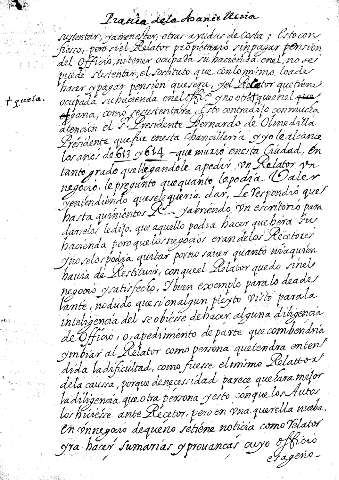 Pratica de la Chancilleria
sustentar, y a menester, otras ayudas de Costa; Esto con
fieso, pero si el Relator proprietario sin pagar pension
del Officio, no tener ocupada su hacienda en el, no se
puede sustentar, el sustituto que con lo mismo, lo a de
hacer si pagar pension quesera, y el Relator que tiene
+ guna. ocupada su hacienda en el
, como se sustentara, Esto contradijo con mucha
atencion el Sr. Presidente Bernardo de Olmedilla
Presidente que fue en esta Chancilleria y yo le alcance
los años de 613 y 614 que murio en esta Ciudad, en
tanto grado que llegandole a pedir, un Relator un
negocio, le pregunto que quanto le podria Valer
vendiendolo que se le queria, dar, le Respondio que
hasta quinientos Rs. y abriendo, un escritorio para
darselos le dijo, que aquello podia hacer que hera su
hacienda porque los negocios eran de los Recetores
y no se los podia quitar por no saver quanto ni a quien
havia de Restituir, con que el Relator quedo sin el
negocio y satisfecho, I buen exemplo para lo de ade
lante, no dudo que si en algun pleyto visto para la
inteligencia del se obiese de hacer alguna diligencia
de Officio, o, a pedimento de parte que combendria
ymbiar al Relator como persona que tendra enten
dida la dificultad, como fuese el mismo Relator
de la causa, porque de necesidad parece que hara mejor
la diligencia que otra persona y esto con que los Autos
los hiciese ante Recetor, pero en una querella nueba,
en un negocio de que no se tiene noticia como Relator
yr a hacer sumarias y provanças cuyo officio
es ageno